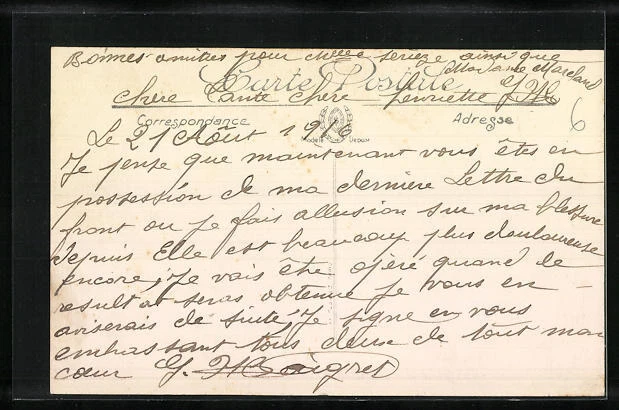 Bonnes amitiés pour chère serieze ainsi que
Madame Marchand
Carte Postale
chère Tante chère Henriette
6
Correspondance
Adresse
Le 21 Août 1916
Je pense que maintenant vous êtes en
possession de ma dernière Lettre du
front ou je fais allusion sur ma blessure
depuis Elle est beaucoup plus douloureuse
encore, Je vais être opéré quand le
resultat seras obtenue je vous en
aviserais de suite, Je signe en vous
embrassant tous deux de tout mon
cœur G.